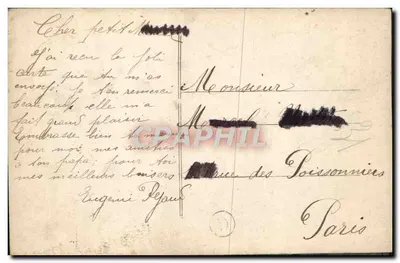 Cher petit
J'ai recu la joli
carte que tu m'as
envoyé je t'en remerci
beaucoup elle m'a
fait grand plaisir
embrasse bien
pour moi, mes amitiés
a ton papa; pour toi
mes meilleurs baisers
Eugenie
Monsieur
rue des Poissonniers
Paris
CPAPHIL